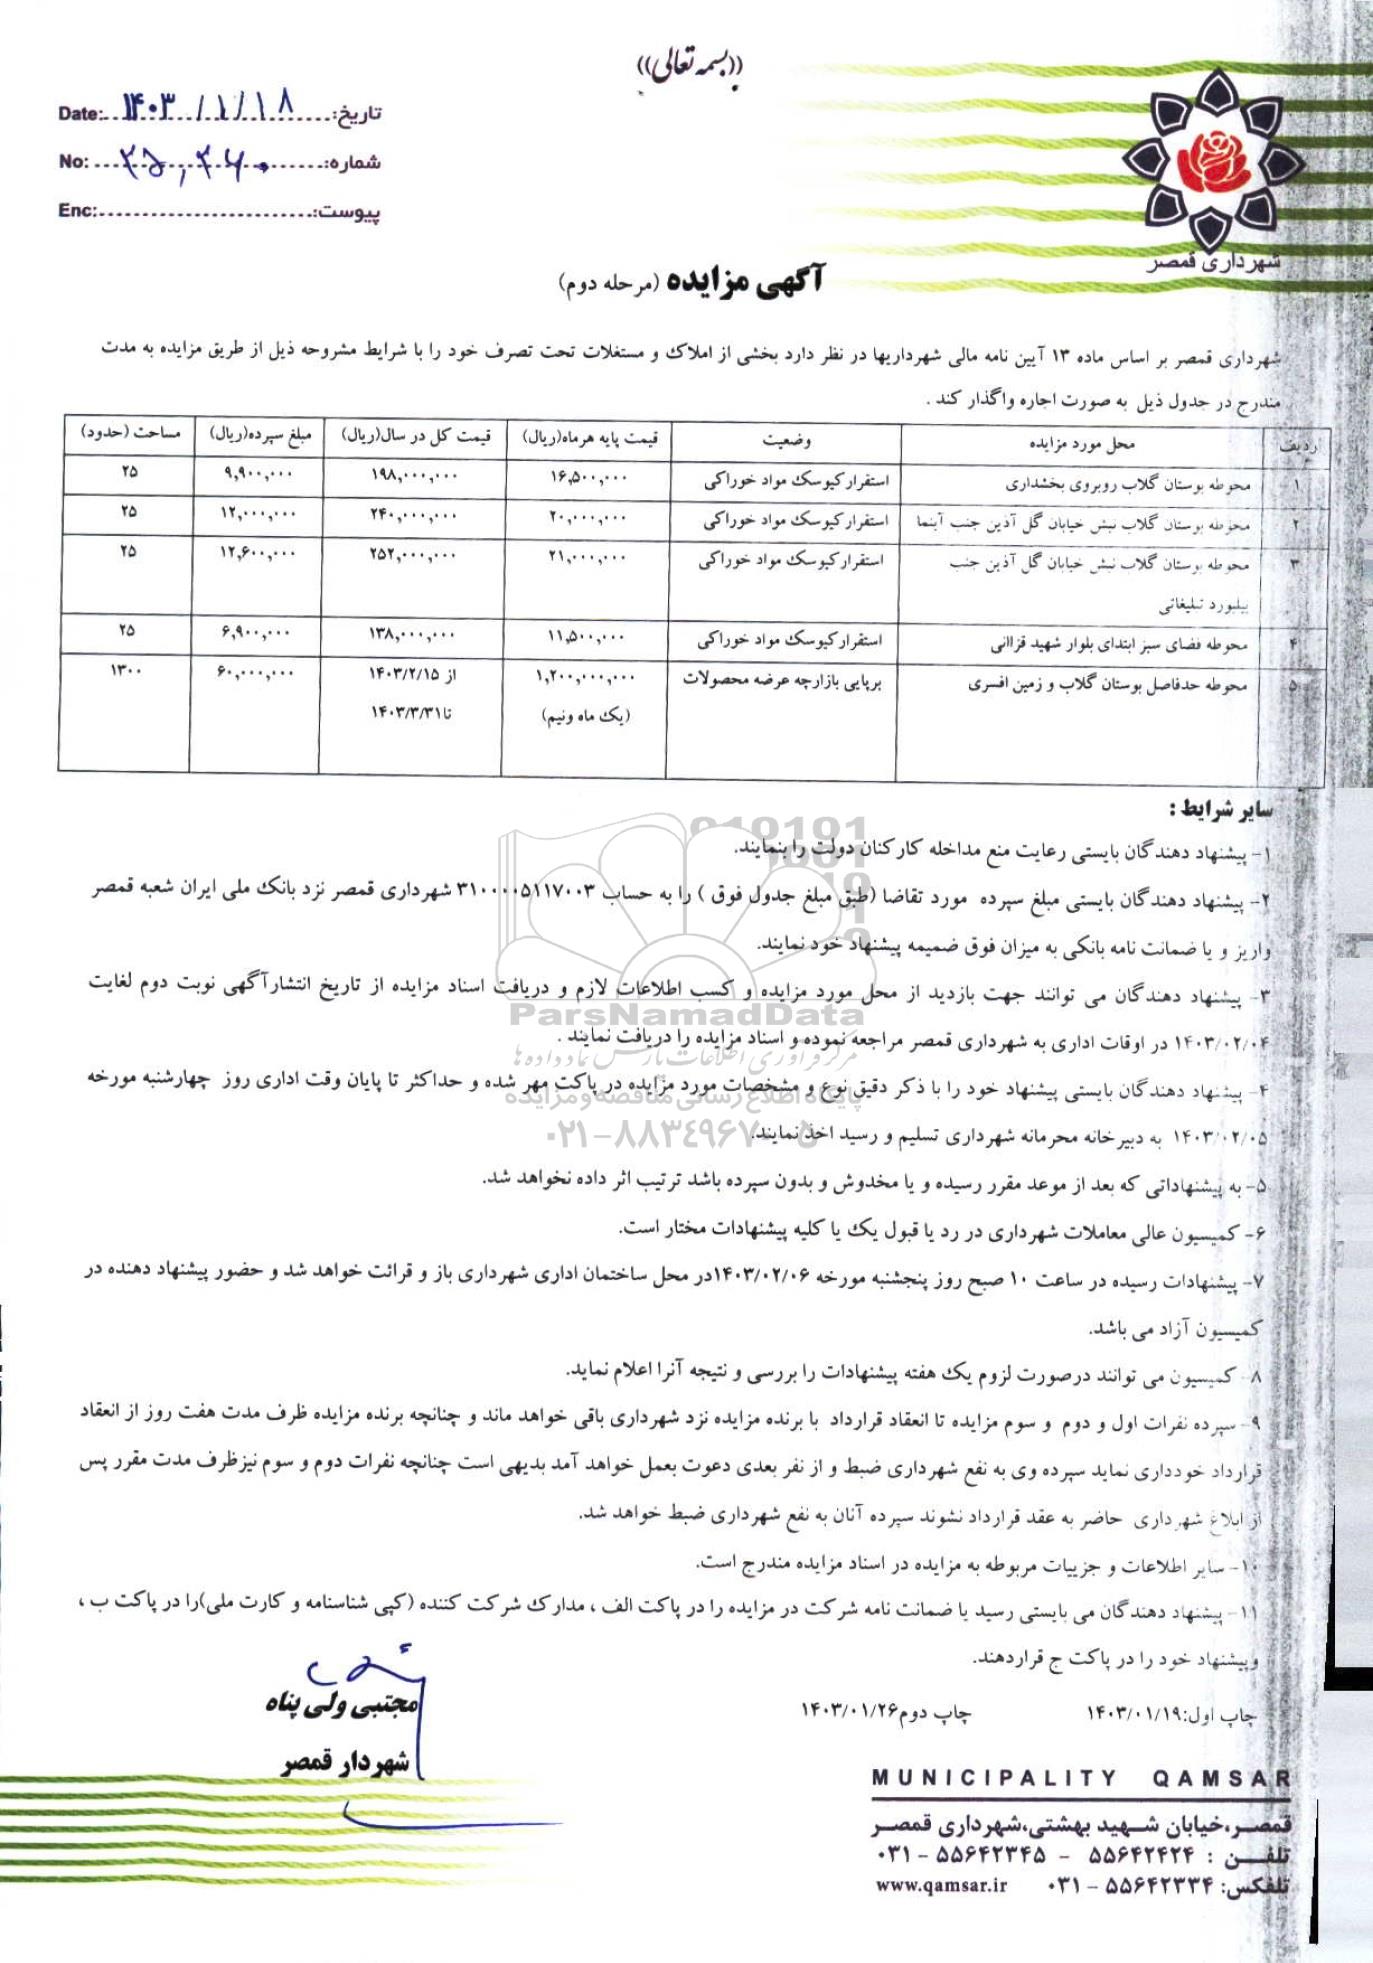 ((بسمه تعالی))
تاریخ: ۱۴۰۳/۱/۱۸ Date:
شماره: No:
پیوست: Enc:
شهرداری قمصر
آگهی مزایده (مرحله دوم)
شهرداری قمصر بر اساس ماده ۱۳ آیین نامه مالی شهرداریها در نظر دارد بخشی از املاک و مستغلات تحت تصرف خود را با شرایط مشروحه ذیل از طریق مزایده به مدت
مندرج در جدول ذیل به صورت اجاره واگذار کند .
ردیف محل مورد مزایده وضعیت قیمت پایه هرماه(ریال) قیمت کل در سال(ریال) مبلغ سپرده(ریال) مساحت (حدود)
۱ محوطه بوستان گلاب روبروی بخشداری استقرارکیوسک مواد خوراکی ۱۶,۵۰۰,۰۰۰ ۱۹۸,۰۰۰,۰۰۰ ۹,۹۰۰,۰۰۰ ۲۵
۲ محوطه بوستان گلاب نبش خیابان گل آذین جنب آبنما استقرارکیوسک مواد خوراکی ۲۰,۰۰۰,۰۰۰ ۲۴۰,۰۰۰,۰۰۰ ۱۲,۰۰۰,۰۰۰ ۲۵
۳ محوطه بوستان گلاب نبش خیابان گل آذین جنب استقرارکیوسک مواد خوراکی ۲۱,۰۰۰,۰۰۰ ۲۵۲,۰۰۰,۰۰۰ ۱۲,۶۰۰,۰۰۰ ۲۵
بیلبورد تبلیغاتی
۴ محوطه فضای سبز ابتدای بلوار شهید قزاانی استقرارکیوسک مواد خوراکی ۱۱,۵۰۰,۰۰۰ ۱۳۸,۰۰۰,۰۰۰ ۶,۹۰۰,۰۰۰ ۲۵
۵ محوطه حدفاصل بوستان گلاب و زمین افسری برپایی بازارچه عرضه محصولات ۱,۲۰۰,۰۰۰,۰۰۰ از ۱۴۰۳/۲/۱۵ ۶۰,۰۰۰,۰۰۰ ۱۳۰۰
(یک ماه ونیم) تا۱۴۰۳/۳/۳۱
سایر شرایط :
۱- پیشنهاد دهندگان بایستی رعایت منع مداخله کارکنان دولت را بنمایند.
۲- پیشنهاد دهندگان بایستی مبلغ سپرده مورد تقاضا (طبق مبلغ جدول فوق ) را به حساب ۳۱۰۰۰۰۵۱۱۷۰۰۳ شهرداری قمصر نزد بانک ملی ایران شعبه قمصر
واریز و یا ضمانت نامه بانکی به میزان فوق ضمیمه پیشنهاد خود نمایند.
۳- پیشنهاد دهندگان می توانند جهت بازدید از محل مورد مزایده و کسب اطلاعات لازم و دریافت اسناد مزایده از تاریخ انتشارآگهی نوبت دوم لغایت
۱۴۰۳/۰۲/۰۴ در اوقات اداری به شهرداری قمصر مراجعه نموده و اسناد مزایده را دریافت نمایند .
۴- پیشنهاد دهندگان بایستی پیشنهاد خود را با ذکر دقیق نوع و مشخصات مورد مزایده در پاکت مهر شده و حداکثر تا پایان وقت اداری روز چهارشنبه مورخه
۱۴۰۳/۰۲/۰۵ به دبیرخانه محرمانه شهرداری تسلیم و رسید اخذ نمایند.
۵- به پیشنهاداتی که بعد از موعد مقرر رسیده و یا مخدوش و بدون سپرده باشد ترتیب اثر داده نخواهد شد.
۶- کمیسیون عالی معاملات شهرداری در رد یا قبول یک یا کلیه پیشنهادات مختار است.
۷- پیشنهادات رسیده در ساعت ۱۰ صبح روز پنجشنبه مورخه ۱۴۰۳/۰۲/۰۶در محل ساختمان اداری شهرداری باز و قرائت خواهد شد و حضور پیشنهاد دهنده در
کمیسیون آزاد می باشد.
۸- کمیسیون می توانند درصورت لزوم یک هفته پیشنهادات را بررسی و نتیجه آنرا اعلام نماید.
۹- سپرده نفرات اول و دوم و سوم مزایده تا انعقاد قرارداد با برنده مزایده نزد شهرداری باقی خواهد ماند و چنانچه برنده مزایده ظرف مدت هفت روز از انعقاد
قرارداد خودداری نماید سپرده وی به نفع شهرداری ضبط و از نفر بعدی دعوت بعمل خواهد آمد بدیهی است چنانچه نفرات دوم و سوم نیزظرف مدت مقرر پس
از ابلاغ شهرداری حاضر به عقد قرارداد نشوند سپرده آنان به نفع شهرداری ضبط خواهد شد.
۱۰- سایر اطلاعات و جزییات مربوطه به مزایده در اسناد مزایده مندرج است.
۱۱- پیشنهاد دهندگان می بایستی رسید یا ضمانت نامه شرکت در مزایده را در پاکت الف ، مدارک شرکت کننده (کپی شناسنامه و کارت ملی)را در پاکت ب ،
وپیشنهاد خود را در پاکت ج قراردهند.
چاپ اول:۱۴۰۳/۰۱/۱۹ چاپ دوم۱۴۰۳/۰۱/۲۶
مجتبی ولی پناه
شهردار قمصر
MUNICIPALITY QAMSAR
قمصر،خیابان شهید بهشتی،شهرداری قمصر
تلفن : ۵۵۶۴۲۴۲۴ - ۵۵۶۴۲۳۴۵ - ۰۳۱
تلفکس: ۵۵۶۴۲۳۳۴ - ۰۳۱ www.qamsar.ir
ParsNamadData
مرکز فرآوری اطلاعات پارس نماد داده ها
پایگاه اطلاع رسانی مناقصه و مزایده